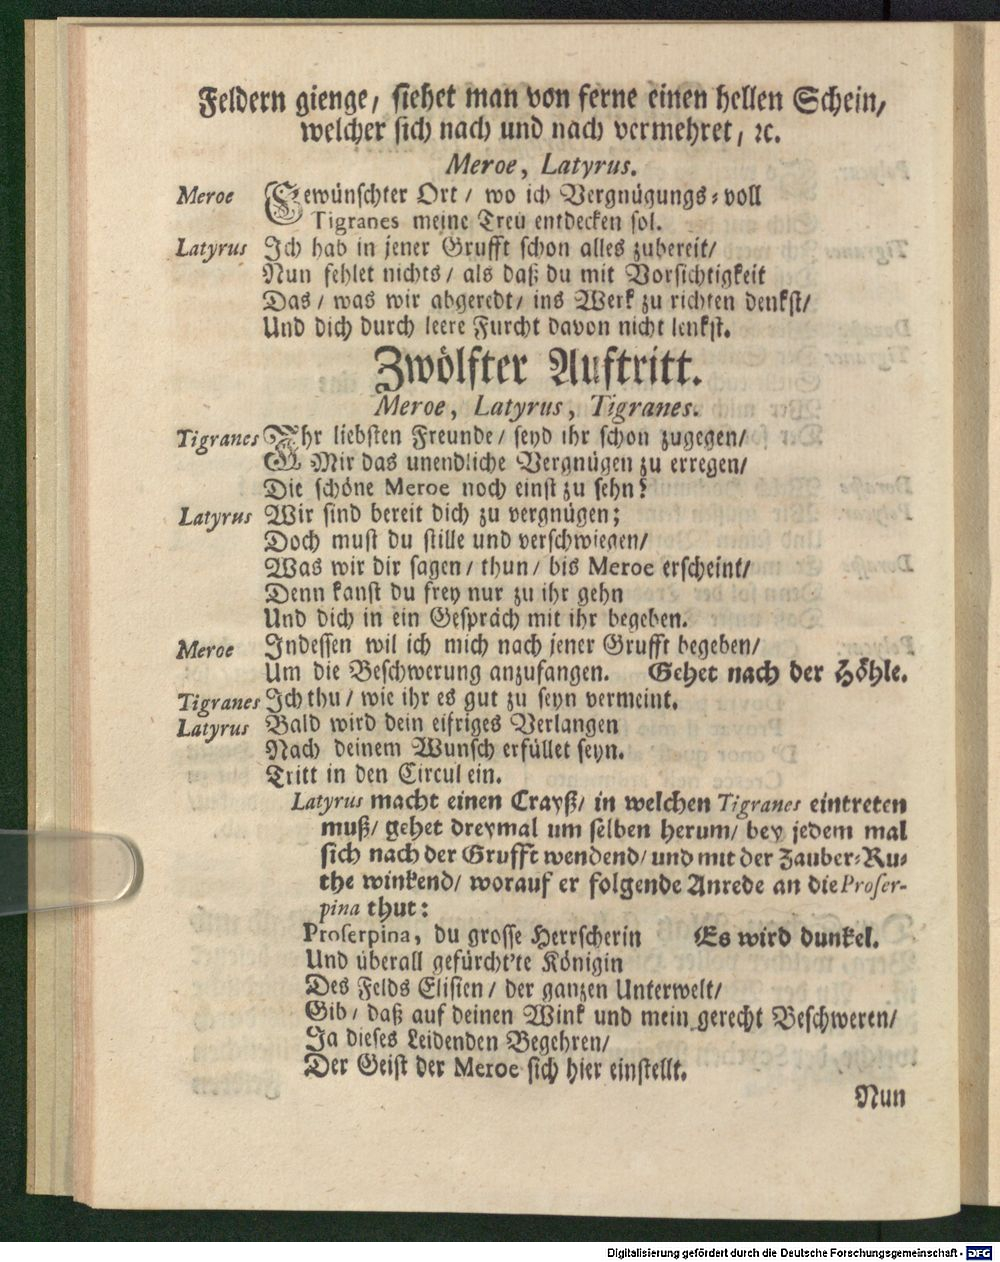 Feldern gienge/ siehet man von ferne einen hellen Schein/
welcher sich nach und nach vermehret/ ꝛc.
Meroe, Latyrus.
Meroe Gewünschter Ort/ wo ich Vergnügungs-voll
Tigranes meine Treu entdecken sol.
Latyrus Ich hab in jener Grufft schon alles zubereit/
Nun fehlet nichts/ als daß du mit Vorsichtigkeit
Das/ was wir abgeredt/ ins Werk zu richten denkst/
Und dich durch leere Furcht davon nicht lenkst.
Zwölfter Auftritt.
Meroe, Latyrus, Tigranes.
Tigranes Ihr liebsten Freunde/ seyd ihr schon zugegen/
Mir das unendliche Vergnügen zu erregen/
Die schöne Meroe noch einst zu sehn?
Latyrus Wir sind bereit dich zu vergnügen;
Doch must du stille und verschwiegen/
Was wir dir sagen/ thun/ bis Meroe erscheint/
Denn kanst du frey nur zu ihr gehn
Und dich in ein Gespräch mit ihr begeben.
Meroe Indessen wil ich mich nach jener Grufft begeben/
Um die Beschwerung anzufangen. Gehet nach der Höhle.
Tigranes Ich thu/ wie ihr es gut zu seyn vermeint.
Latyrus Bald wird dein eifriges Verlangen
Nach deinem Wunsch erfüllet seyn.
Tritt in den Circul ein.
Latyrus macht einen Crayß/ in welchen Tigranes eintreten
muß/ gehet dreymal um selben herum/ bey jedem mal
sich nach der Grufft wendend/ und mit der Zauber-Ru-
the winkend/ worauf er folgende Anrede an die Proser-
pina thut:
Proserpina, du grosse Herrscherin Es wird dunkel.
Und überall gefürcht'te Königin
Des Felds Elisien/ der ganzen Unterwelt/
Gib/ daß auf deinen Wink und mein gerecht Beschweren/
Ja dieses Leidenden Begehren/
Der Geist der Meroe sich hier einstellt.
Nun
Digitalisierung gefördert durch die Deutsche Forschungsgemeinschaft - DFG